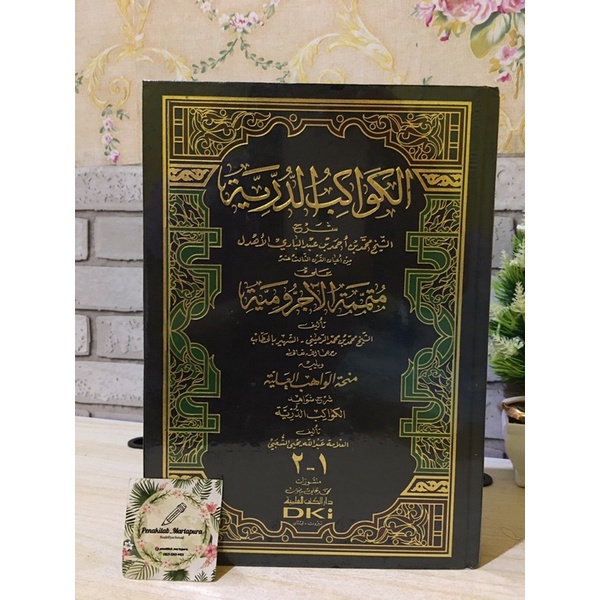 الكواكب الدرية
شرح
الشيخ محمد بن أحمد بن عبد الباري الأهدل
من أعيان القرن الثالث عشر
على
متممة الآجرومية
تأليف
الشيخ محمد بن محمد الرعيني - الشهير بالحطاب
رحمه الله تعالى
ويليه
منحة الواهب العلية
شرح شواهد
الكواكب الدرية
تأليف
العلامة عبد الله يحيى الشعبي
١-٢
منشورات
محمد علي بيضون
دار الكتب العلمية
DKi
بيروت - لبنان
Penakitab_Martapura